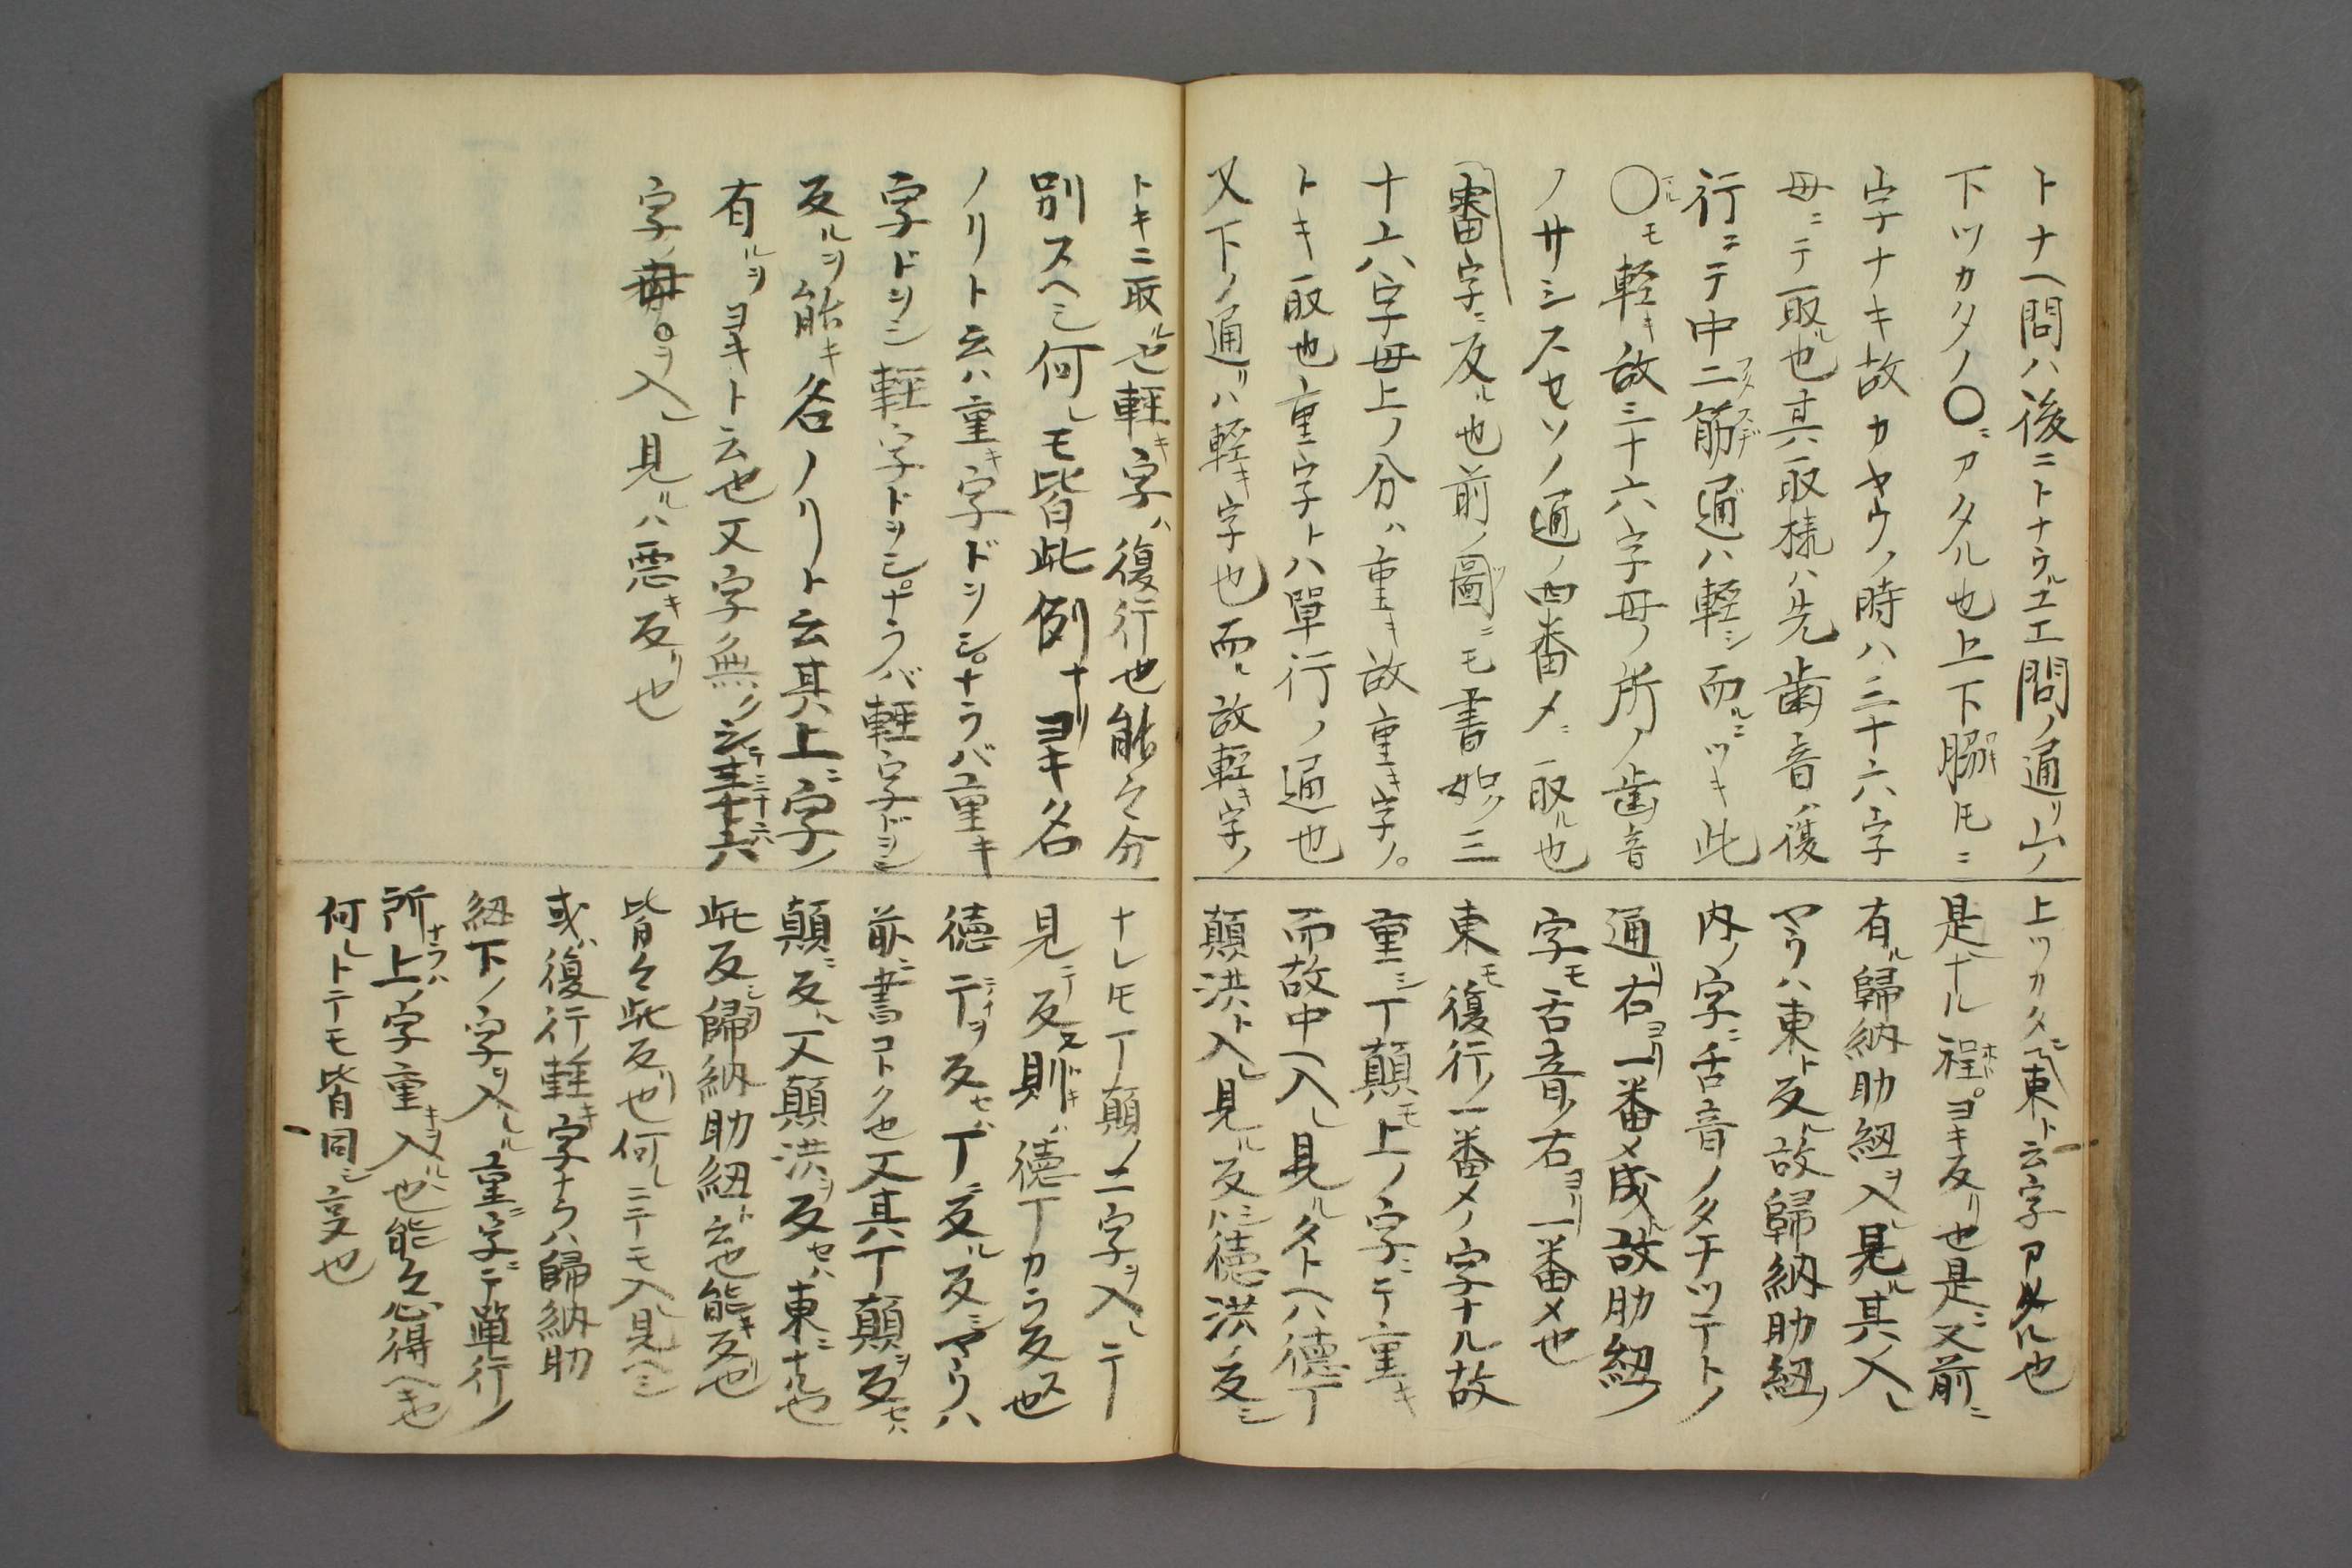 トナヘ問ハ後ニトナウルエエ問ノ通リ山ノ
下ツカタノ〇ニアタル也上下脇トモニ
字ナキ故カヤウノ時ハ三十六字
母ニテ取ル也其取様ハ先歯音ハ復
行ニテ中二筋通ハ軽シ而ルニツキ此
〇モ軽キ故三十六字母ノ所ノ歯音
ノサシスセソノ通ノ四番メニ取ル也
審字ニ反ル也前ノ圖ニモ書如ク三
十六字母上ノ分ハ重キ故重キ字ノ
トキ取也重字トハ單行ノ通也
又下ノ通リハ軽キ字也而ル故軽キ字ノ
トキニ取ル也軽キ字ハ復行也能々分
別スヘシ何レモ皆此例ナリヨキ名
ノリト云ハ重キ字ドシナラバ重キ
字ドシ軽字ドシナラバ軽字ドシ
反ルヲ能キ名ノリト云其上ニ字ノ
有ルヲヨキト云也又字無ノシテ三十六
字ノ母ヲ入レ見ルハ悪キ反リ也
上ツカタニ東ト云字アル也
是ナル程ヨキ反リ也是ニ又前ニ
有ル歸納助紐ヲ入レ見ル其入レ
ヤウハ東ト反ル故歸納助紐ノ
内ノ字ニ舌音ノタチツテトノ
通リ右ヨリ一番メ成ル故助紐ノ
字モ舌音ノ右ヨリ一番メ也
東モ復行ノ一番メノ字ナル故
重シ丁顛モ上ノ字ニテ重キ
而故中ヘ入レ見ルタトヘハ德丁
顛洪ト入レ見ル反ハ德洪ノ反シ
ナレトモ丁顛ノ二字ヲ入レテ
見テ反ス則ハ德丁カラ反ス也
德テイヲ反セハ丁ニ反ル反シヤウハ
前ニ書コトク也又其丁顛ヲ反セハ
顛ニ反ル又顛洪ヲ反セハ東ニナル也
此反シヲ歸納助紐ト云也能キ反リ也
皆々此反リ也何レニテモ入見ヘシ
或ハ復行ノ軽キ字ナラハ歸納助
紐下ノ字ヲ入レル重字ニテ單行ノ
所ナラハ上ノ字重キヲ入ル也能々心得ヘキ也
何レトテモ皆同シ亨也